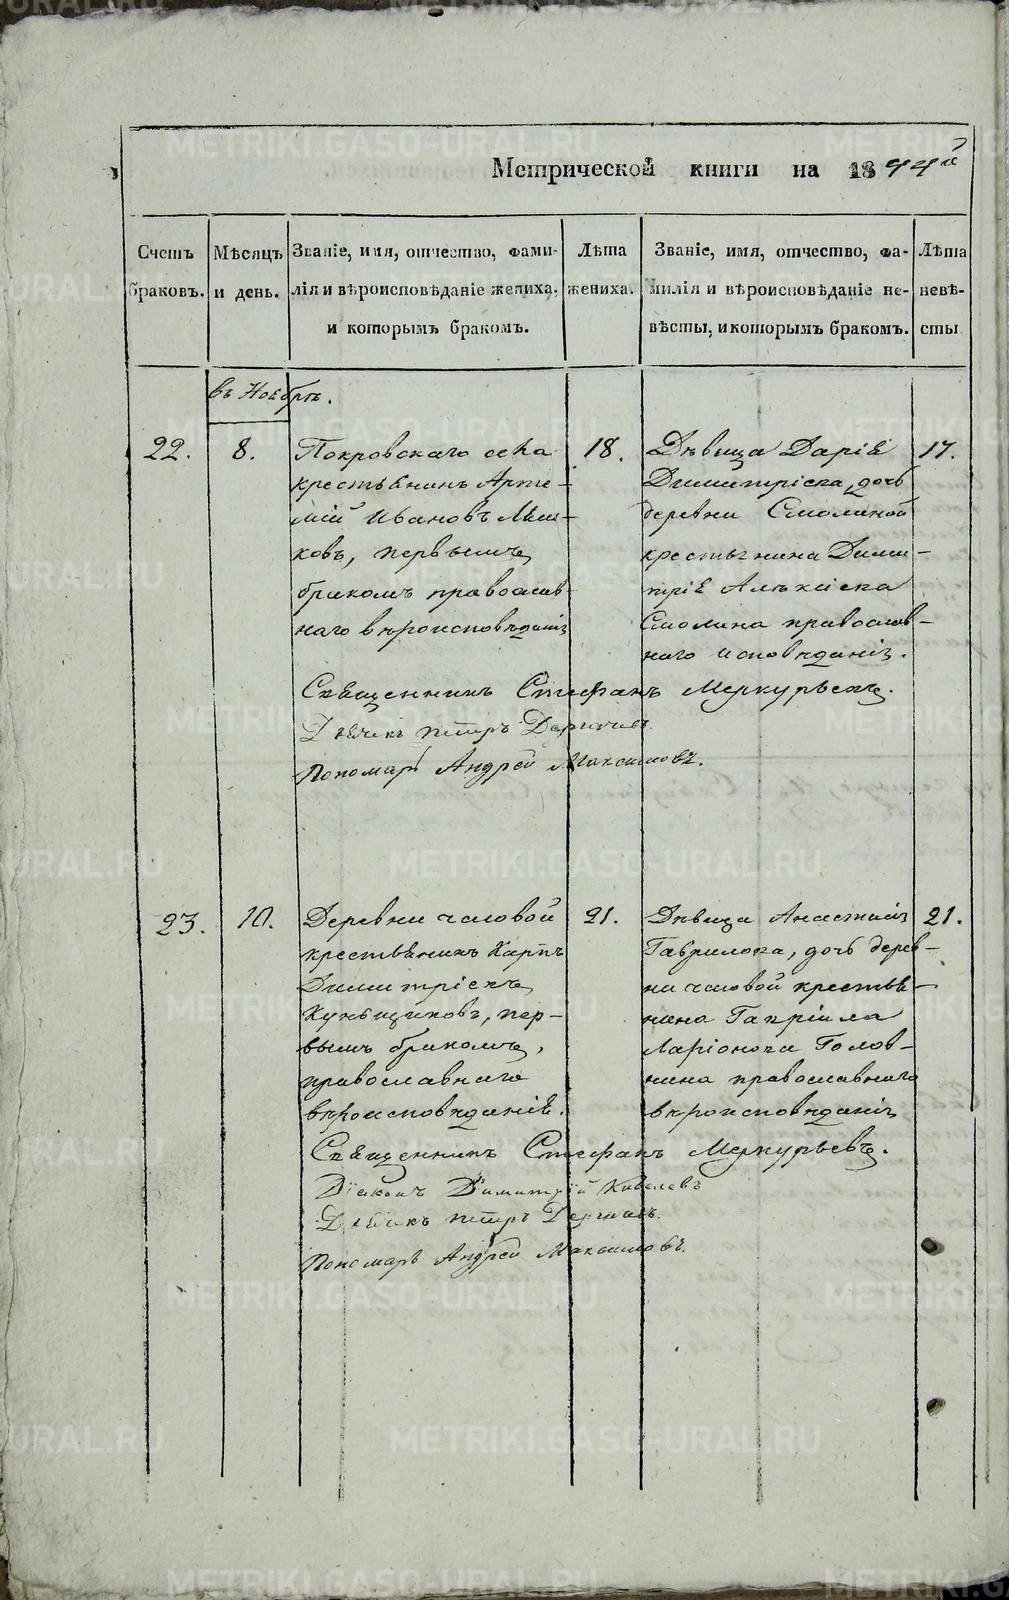 Метрической книги на 1844й
Счетъ браковъ.
Мѣсяцъ и день.
Званіе, имя, отчество, фами-
лія и вѣроисповѣданіе жениха,
и которымъ бракомъ.
Лѣта жениха.
Званіе, имя, отчество, фа-
милія и вѣроисповѣданіе не-
вѣсты, и которымъ бракомъ.
Лѣта невѣ-
сты
въ Ноябрѣ.
22.
8.
Покровскаго села
крестьянинъ Арте-
мій Ивановъ
ковъ, первымъ
бракомъ православ
наго вѣроисповѣданія
18.
Дѣвица Дарія
Димитріева, дочь
деревни Смолиной
крестьянина Дими-
трія Алексіева
Смолина православ-
наго исповѣданія.
17.
Священникъ Стефанъ Меркурьевъ.
Дьячекъ Петръ Дерягинъ.
Пономарь Андрей Максимовъ.
23.
10.
Деревни часовой
крестьянинъ Карпъ
Димитріевъ
Кунщиковъ, пер-
вымъ бракомъ,
православнаго
вѣроисповѣданія.
21.
Дѣвица Анастасія
Гаврилова, дочь дерев-
ни часовой крестья-
нина Гавріила
Ларіонова Голов-
нина православнаго
вѣроисповѣданія
21.
Священникъ Стефанъ Меркурьевъ.
Діаконъ Димитрій
Дьячекъ Петръ Дерягинъ.
Пономарь Андрей Максимовъ.
METRIKI.GASO-URAL.RU